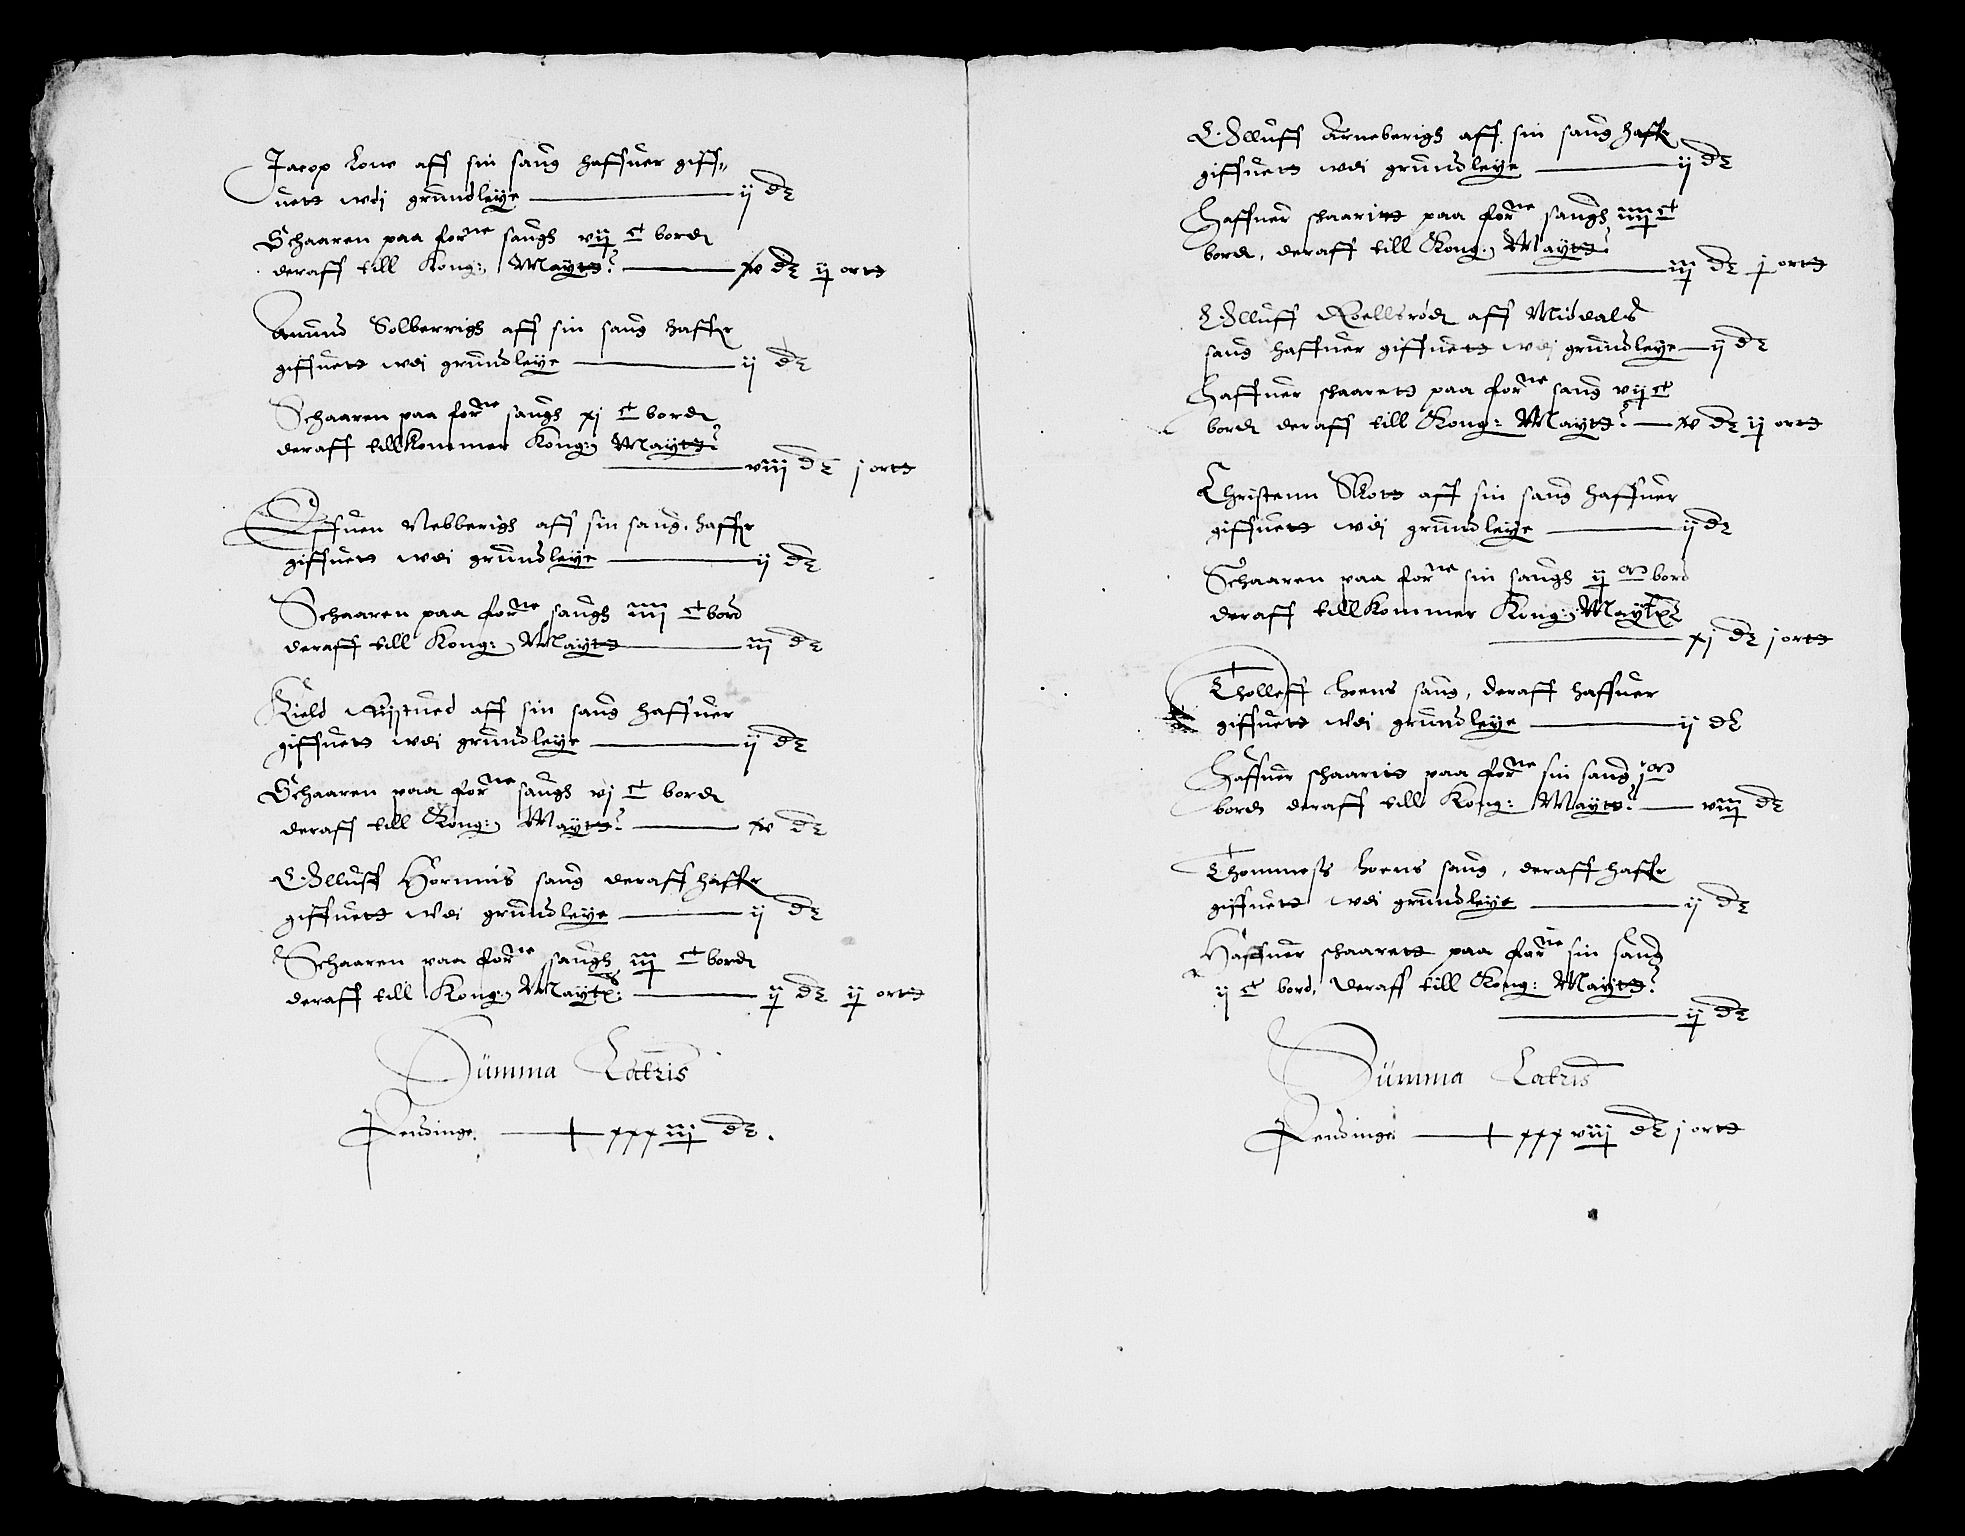 Jacop Lone aff sin saug haffuer giff„
uett wdj grundleÿe ij dr
Schaaren paa forne saugh vij ct bordr
deraff till Kong: Maytts: v dr ij ortt
Amund Solberrigh aff sin saug haffr
giffuett wdi grundleÿe ij dr
Schaaren paa forne saugh xj ct bordr
deraff tillkommer Kong: Maytts:
viij dr j ortt
Effuen Nebberigh aff sin saug, haffr
giffuett wdi grundleÿe ij dr
Schaaren paa forne saugh iiij ct bord
deraff till Kong: Maytt iij dr
Kield aff sin saug haffuer
giffuett wdi grundleÿe ij dr
Schaaren paa forne saugh vj ct bordr
deraff till Kong: Maÿtts: v dr
Elluff Hornnis saug deraff haffr
giffuett wdi grundleÿe ij dr
Schaaren paa forne saugh iij ct bordr
deraff till Kong: Maÿtz: ij dr ij ortt
Summa Latris
Pendinge xxxiij dr.
Elluff Arneberigh aff sin saug haffr
giffuett wdi grundleÿe ij dr
Haffuer schaaritt paa forne saugh iiij ct
bordr, deraff till Kong: Maytts:
iij dr j ortt
Elluff Roellsrødr aff Middals
saug haffuer giffuett wdj grundleÿe ij dr
Haffuer schaarett paa forne saug vij ct
bordr deraff till Kong: Maytts: v dr ij ortt
Christenn Skott aff sin saug haffuer
giffuett wdj grundleÿe ij dr
Schaaren paa forne sin saugh ij m bord
deraff tillkommer Kong: Maÿtz
xj dr j ortt
Tholleff hoens saug, deraff haffuer
giffuett wdi grundleÿe ij dr
Haffuer schaaritt paa forne sin saug j m
bordr deraff till Kong: Maytts: viij dr
Thommess hoens saug, deraff haffr
giffuett wdi grundleÿe ij dr
Haffuer schaarett paa forne sin saug
ij ct bord, deraff till Kong: Maytts:
ij dr
Summa Latris
Pendinge xxxviij dr j ortt